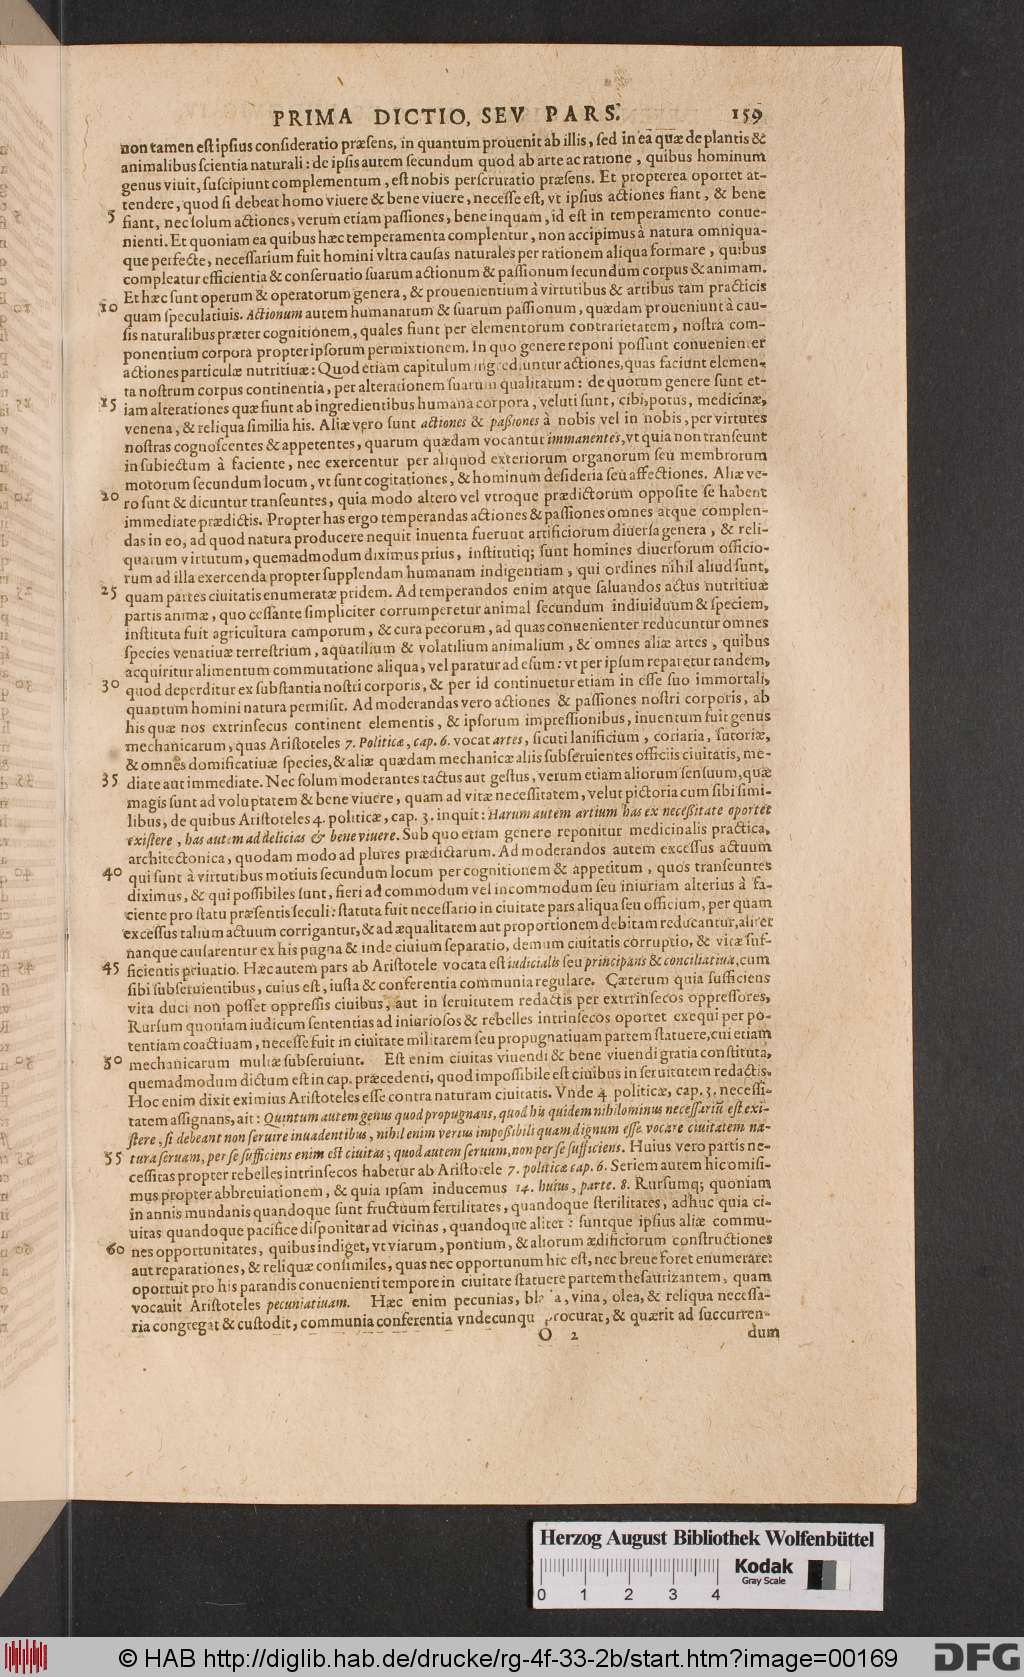 PRIMA DICTIO, SEV PARS. 159
non tamen est ipsius consideratio præsens, in quantum prouenit ab illis, sed in ea quæ de plantis &
animalibus scientia naturali: de ipsis autem secundum quod ab arte ac ratione, quibus hominum
genus viuit, suscipiunt complementum, est nobis perscrutatio præsens. Et propterea oportet at-
tendere, quod si debeat homo viuere & bene viuere, necesse est, vt ipsius actiones fiant, & bene
5 fiant, nec solum actiones, verum etiam passiones, bene inquam, id est in temperamento conue-
nienti. Et quoniam ea quibus hæc temperamenta complentur, non accipimus à natura omniqua-
que perfecte, necessarium fuit homini vltra causas naturales per rationem aliqua formare, quibus
compleatur efficientia & conseruatio suarum actionum & passionum secundum corpus & animam.
Et hæc sunt operum & operatorum genera, & prouenientium à virtutibus & artibus tam practicis
10 quam speculatiuis. Actionum autem humanarum & suarum passionum, quædam proueniunt à cau-
sis naturalibus præter cognitionem, quales fiunt per elementorum contrarietatem, nostra com-
ponentium corpora propter ipsorum permixtionem. In quo genere reponi possunt conuenienter
actiones particulæ nutritiuæ: Quod etiam capitulum ingrediuntur actiones, quas faciunt elemen-
ta nostrum corpus continentia, per alterationem suarum qualitatum: de quorum genere sunt et-
15 iam alterationes quæ fiunt ab ingredientibus humana corpora, veluti sunt, cibi, potus, medicinæ,
venena, & reliqua similia his. Aliæ vero sunt actiones & passiones à nobis vel in nobis, per virtutes
nostras cognoscentes & appetentes, quarum quædam vocantur immanentes, vt quia non transeunt
in subiectum à faciente, nec exercentur per aliquod exteriorum organorum seu membrorum
motorum secundum locum, vt sunt cogitationes, & hominum desideria seu affectiones. Aliæ ve-
20 ro sunt & dicuntur transeuntes, quia modo altero vel vtroque prædictorum opposite se habent
immediate prædictis. Propter has ergo temperandas actiones & passiones omnes atque complen-
das in eo, ad quod natura producere nequit inuenta fuerunt artificiorum diuersa genera, & reli-
quarum virtutum, quemadmodum diximus prius, institutiq; sunt homines diuersorum officio-
rum ad illa exercenda propter supplendam humanam indigentiam, qui ordines nihil aliud sunt,
25 quam partes ciuitatis enumeratæ pridem. Ad temperandos enim atque saluandos actus nutritiuæ
partis animæ, quo cessante simpliciter corrumperetur animal secundum indiuiduum & speciem,
instituta fuit agricultura camporum, & cura pecorum, ad quas conuenienter reducuntur omnes
species venatiuæ terrestrium, aquatilium & volatilium animalium, & omnes aliæ artes, quibus
acquiritur alimentum commutatione aliqua, vel paratur ad esum: vt per ipsum reparetur tandem,
30 quod deperditur ex substantia nostri corporis, & per id continuetur etiam in esse suo immortali,
quantum homini natura permisit. Ad moderandas vero actiones & passiones nostri corporis, ab
his quæ nos extrinsecus continent elementis, & ipsorum impressionibus, inuentum fuit genus
mechanicarum, quas Aristoteles 7. Politicæ, cap. 6. vocat artes, sicuti lanificium, coriaria, sutoriæ,
& omnes domificatiuæ species, & aliæ quædam mechanicæ aliis subseruientes officiis ciuitatis, me-
35 diate aut immediate. Nec solum moderantes tactus aut gestus, verum etiam aliorum sensuum, quæ
magis sunt ad voluptatem & bene viuere, quam ad vitæ necessitatem, velut pictoria cum sibi simi-
libus, de quibus Aristoteles 4. politicæ, cap. 3. inquit: Harum autem artium has ex necessitate oportet
existere, has autem ad delicias & bene viuere. Sub quo etiam genere reponitur medicinalis practica,
architectonica, quodam modo ad plures prædictarum. Ad moderandos autem excessus actuum
40 qui sunt à virtutibus motiuis secundum locum per cognitionem & appetitum, quos transeuntes
diximus, & qui possibiles sunt, fieri ad commodum vel incommodum seu iniuriam alterius à fa-
ciente pro statu præsentis seculi: statuta fuit necessario in ciuitate pars aliqua seu officium, per quam
excessus talium actuum corrigantur, & ad æqualitatem aut proportionem debitam reducantur, aliter
nanque causarentur ex his pugna & inde ciuium separatio, demum ciuitatis corruptio, & vitæ suf-
45 ficientis priuatio. Hæc autem pars ab Aristotele vocata est iudicialis seu principans & conciliatiua, cum
sibi subseruientibus, cuius est, iusta & conferentia communia regulare. Cæterum quia sufficiens
vita duci non posset oppressis ciuibus, aut in seruitutem redactis per extrinsecos oppressores,
Rursum quoniam iudicum sententias ad iniuriosos & rebelles intrinsecos oportet exequi per po-
tentiam coactiuam, necesse fuit in ciuitate militarem seu propugnatiuam partem statuere, cui etiam
50 mechanicarum multæ subseruiunt. Est enim ciuitas viuendi & bene viuendi gratia constituta,
quemadmodum dictum est in cap. præcedenti, quod impossibile est ciuibus in seruitutem redactis.
Hoc enim dixit eximius Aristoteles esse contra naturam ciuitatis. Vnde 4 politicæ, cap. 3. necessi-
tatem assignans, ait: Quintum autem genus quod propugnans, quod his quidem nihilominus necessariũ est exi-
stere, si debeant non seruire inuadentibus, nihil enim verius impossibili quam dignum esse vocare ciuitatem na-
55 tura seruam, per se sufficiens enim est ciuitas; quod autem seruum, non per se sufficiens. Huius vero partis ne-
cessitas propter rebelles intrinsecos habetur ab Aristotele 7. politicæ cap. 6. Seriem autem hic omisi-
mus propter abbreuiationem, & quia ipsam inducemus 14. huius, parte. 8. Rursumq; quoniam
in annis mundanis quandoque sunt fructuum fertilitates, quandoque sterilitates, adhuc quia ci-
uitas quandoque pacifice disponitur ad vicinas, quandoque aliter: suntque ipsius aliæ commu-
60 nes opportunitates, quibus indiget, vt viarum, pontium, & aliorum ædificiorum constructiones
aut reparationes, & reliquæ consimiles, quas nec opportunum hic est, nec breue foret enumerare:
oportuit pro his parandis conuenienti tempore in ciuitate statuere partem thesaurizantem, quam
vocauit Aristoteles pecuniatiuam. Hæc enim pecunias, vina, olea, & reliqua necessa-
ria congregat & custodit, communia conferentia procurat, & quærit ad succurren-
O 2 dum
Herzog August Bibliothek Wolfenbüttel
Kodak
Gray Scale
0 1 2 3 4
© HAB http://diglib.hab.de/drucke/rg-4f-33-2b/start.htm?image=00169
DFG